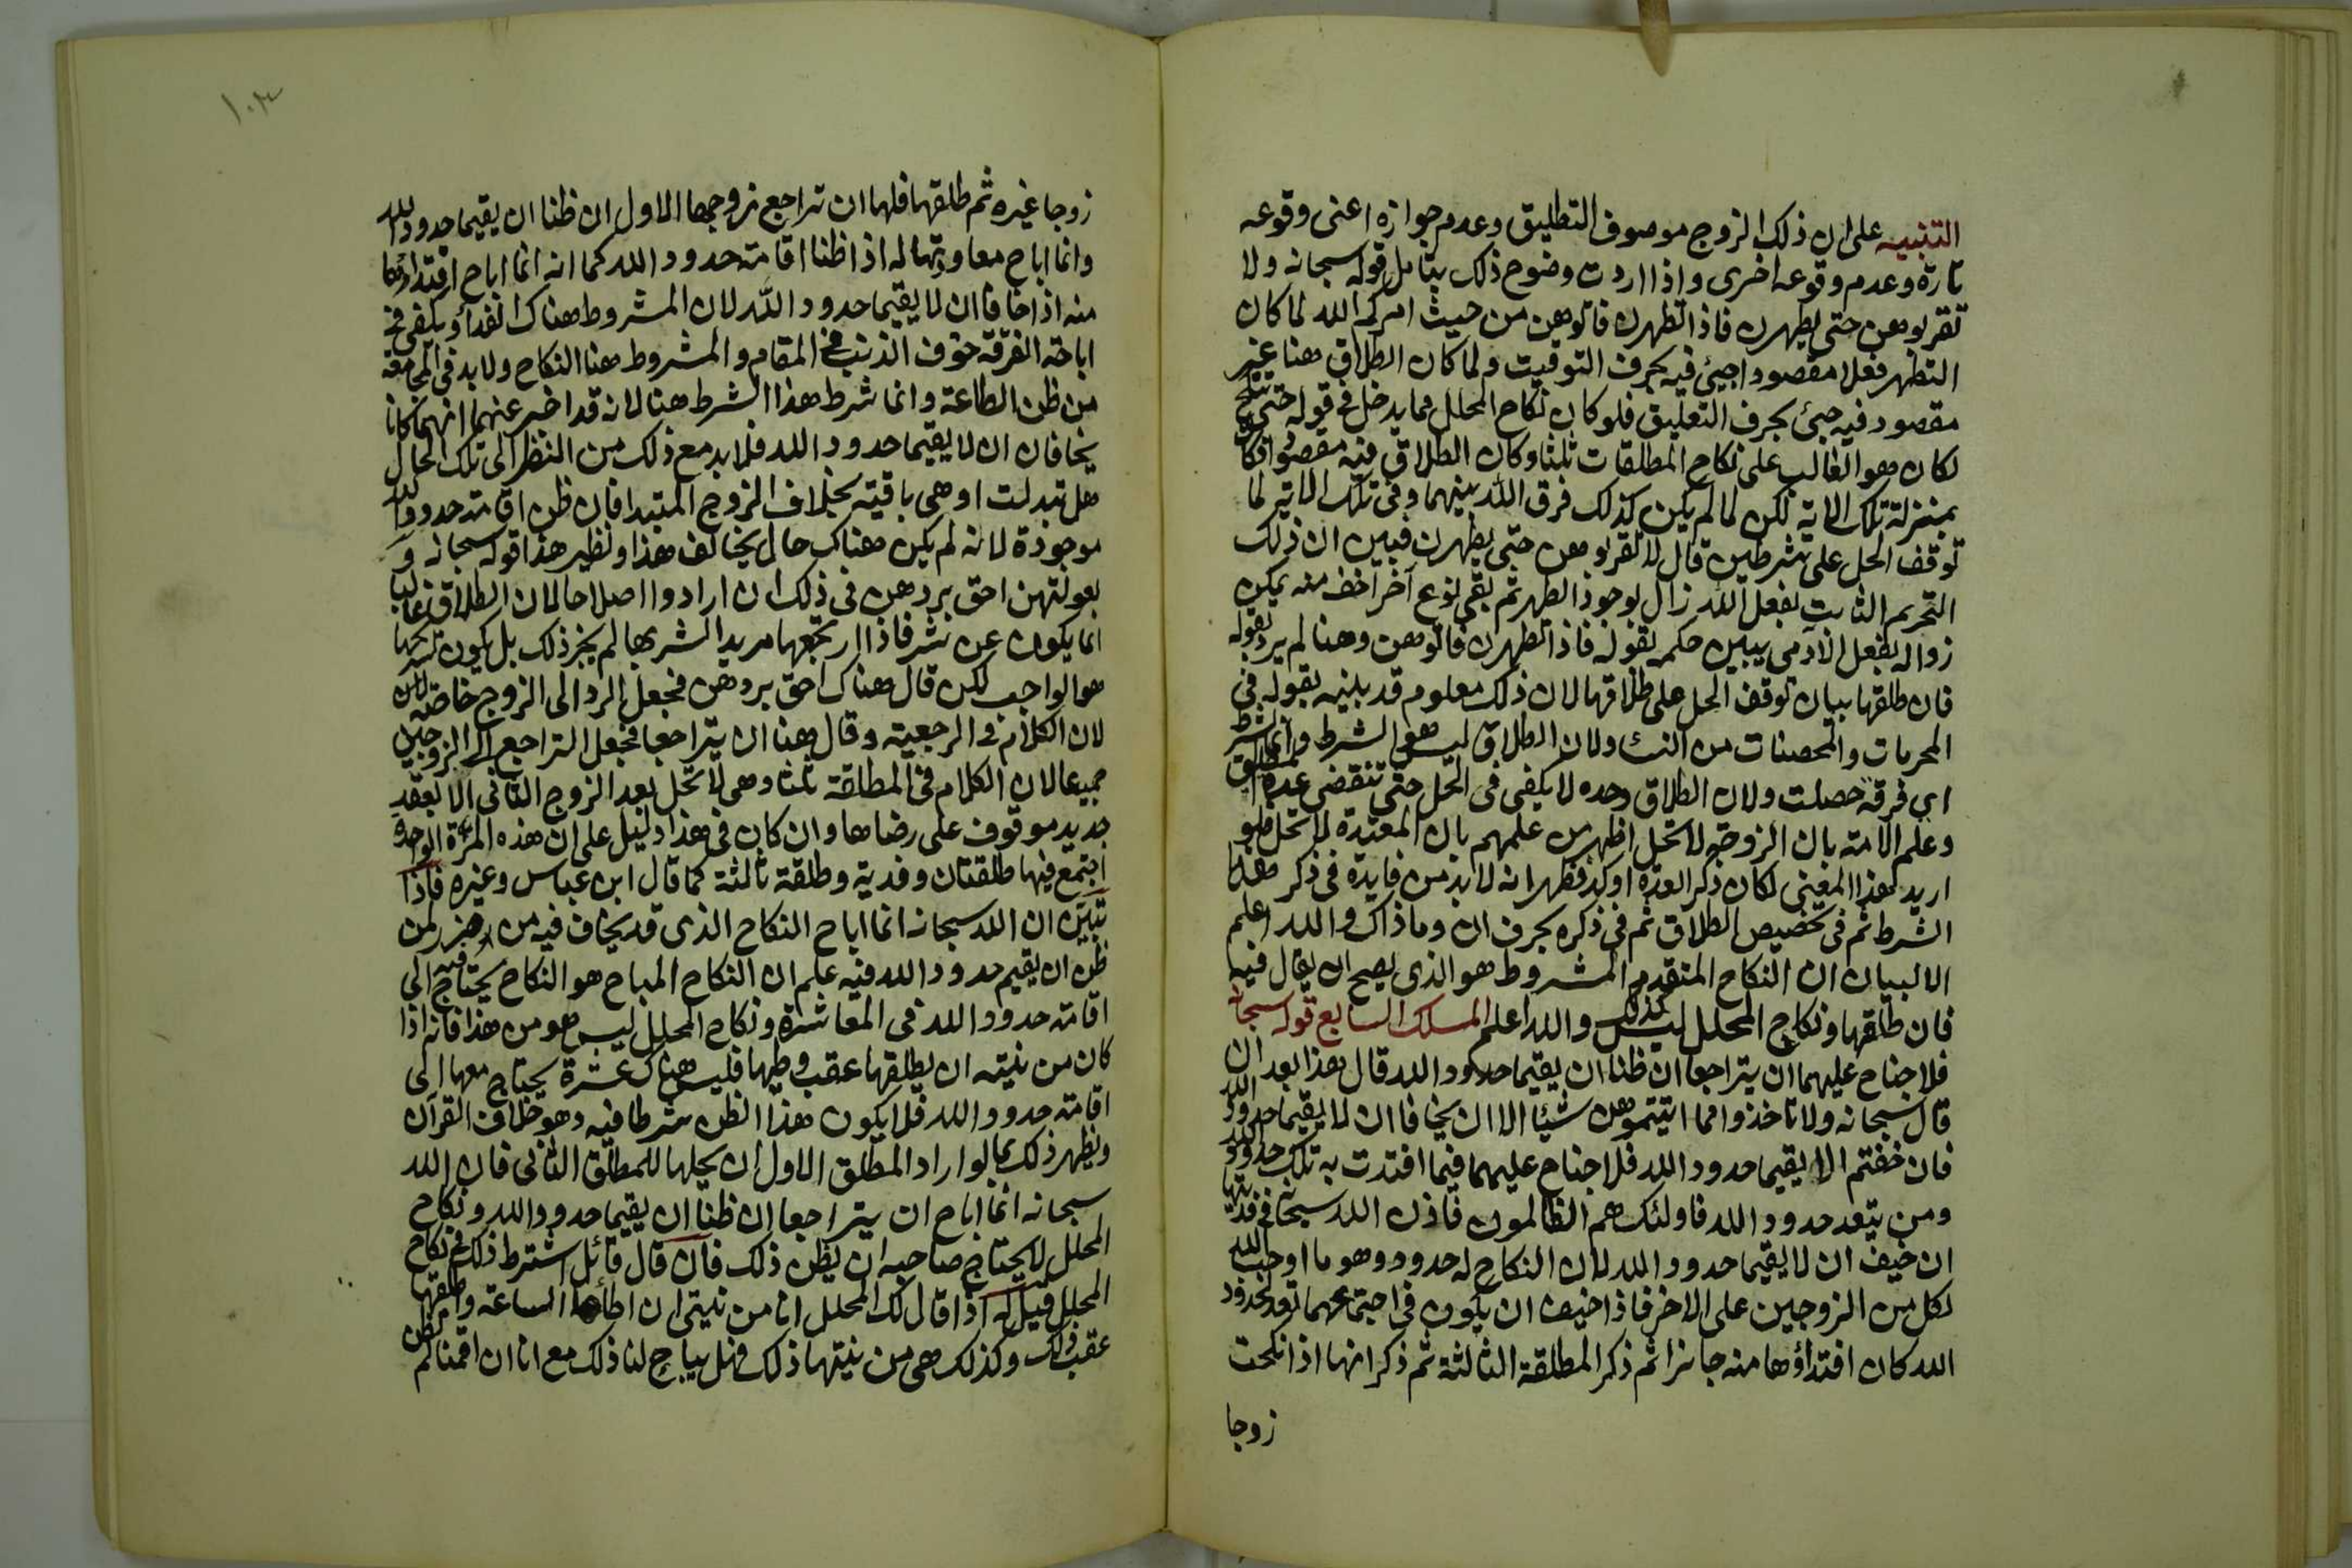 التنبيه على ان ذلك الزوج موصوف التطليق وعدم جوازه اعنى وقوعه
تارة وعدم وقوعه اخرى واذا اردت وضوح ذلك بتامل قوله سبحانه ولا
تقربوهن حتى يطهرن فاذا تطهرن فاتوهن من حيث امركم الله لما كان
التطهر فعلا مقصودا جيئ فيه بحرف التوقيت ولما كان الطلاق هنا غير
مقصود فيه جيئ بحرف التعليق فلو كان نكاح المحلل مما يدخل في قوله حتى تنكح
لكان هو الغالب على نكاح المطلقات ثلثا وكان الطلاق فيه مقصودا فكا
بمنزلة تلك الاية لكن لما لم يكن كذلك فرق الله بينهما وفى تلك الاية لما
توقف الحل على شرطين قال لا تقربوهن حتى يطهرن فبين ان ذلك
التحريم الثابت بفعل الله زال بوجوذ الطهر ثم بقى نوع آخر اخف منه يمكن
زواله بفعل الآدمى يبين حكمه بقوله فاذا تطهرن فاتوهن وهنا لم يرد بقوله
فان طلقها بيان توقف الحل على طلاقها لان ذلك معلوم قد بينه بقوله في
المحرمات والمحصنات من النساء ولان الطلاق ليس هو الشرط وانما الشرط
اي فرقة حصلت ولان الطلاق وحده لا يكفى في الحل حتى تنقضى عدة المطلق
وعلم الامة بان الزوجة لا تحل اظهر من علمهم بان المعتدة لا تحل فلو
اريد هذا المعنى لكان ذكر العدة اوكد فظهر انه لا بد من فايدة في ذكر هذا
الشرط ثم فى تخصيص الطلاق ثم فى ذكره بحرف ان وما ذاك والله اعلم
الا لبيان ان النكاح المتقدم المشروط هو الذى يصح ان يقال فيه
فان طلقها ونكاح المحلل ليس كذلك والله اعلم المسلك السابع قوله سبحانه
فلا جناح عليهما ان يتراجعا ان ظنا ان يقيما حدود الله قال هذا بعد ان
قال سبحانه ولا تاخذوا مما اتيتموهن شيئا الا ان يخافا ان لا يقيما حدود الله
فان خفتم الا يقيما حدود الله فلا جناح عليهما فيما افتدت به تلك حدود الله
ومن يتعد حدود الله فاولئك هم الظالمون فاذن الله سبحانه فى فديتها
ان خيف ان لا يقيما حدود الله لان النكاح له حدود وهو ما اوجب الله
لكل من الزوجين على الاخر فاذا خيف ان يكون فى اجتماعهما تعد لحدود
الله كان افتداؤها منه جائزا ثم ذكر المطلقة الثالثة ثم ذكر انها اذا نكحت
زوجا
١٠٣
زوجا غيره ثم طلقها فلها ان تراجع زوجها الاول ان ظنا ان يقيما حدود الله
وانما اباح معاودتها له اذا ظنا اقامة حدود الله كما انه انما اباح افتدائها
منه اذا خافا ان لا يقيما حدود الله لان المشروط هناك الفداؤ ويكفى في
اباحة الفرقة خوف الذنب فى المقام والمشروط هنا النكاح ولا بد في المجامعة
من ظن الطاعة وانما شرط هذا الشرط هنا لانه قد اخبر عنهما انهما كانا
يخافان ان لا يقيما حدود الله فلا بد مع ذلك من النظر الى تلك الحال
هل تبدلت او هى باقية بخلاف الزوج المبتدا فان ظن اقامة حدود الله
موجودة لانه لم يكن هناك حال يخالف هذا ونظير هذا قوله سبحانه و
بعولتهن احق بردهن في ذلك ان ارادوا اصلاحا لان الطلاق غالبا
انما يكون عن شر فاذا ارتجعها مريدا لشر بها لم يجز ذلك بل يكون تسريحها
هو الواجب لكن قال هناك احق بردهن فجعل الرد الى الزوج خاصة لان
لان الكلام فى الرجعية وقال هنا ان يتراجعا فجعل التراجع الى الزوجين
جميعا لان الكلام فى المطلقة ثلثا وهى لا تحل بعد الزوج الثانى الا بعقد
جديد موقوف على رضاها وان كان فى هذا دليل على ان هذه المرة الواحدة
اجتمع فيها طلقتان وفدية وطلقة ثالثة كما قال ابن عباس وغيره فاذا
تبين ان الله سبحانه انما اباح النكاح الذى قد يخاف فيه من لمن
ظن ان يقيم حدود الله فيه علم ان النكاح المباح هو النكاح يحتاج فيه الى
اقامة حدود الله فى المعاشرة ونكاح المحلل ليس هو من هذا فانه اذا
كان من نيته ان يطلقها عقب وطيها فليس هناك عشرة يحتاج معها الى
اقامة حدود الله فلا يكون هذا الظن شرطا فيه وهو خلاف القرآن
ويظهر ذلك بما لو اراد المطلق الاول ان يحلها للمطلق الثانى فان الله
سبحانه انما اباح ان يتراجعا ان ظنا ان يقيما حدود الله ونكاح
المحلل لا يحتاج صاحبه ان يظن ذلك فان قال قائل اشترط ذلك فى نكاح
المحلل قيل له اذا قال لك المحلل انا من نيتى ان اطاها الساعة واطلقها
عقب ذلك وكذلك هى من نيتها ذلك فهل يباح لنا ذلك مع انا ان اقمنا لم نظن